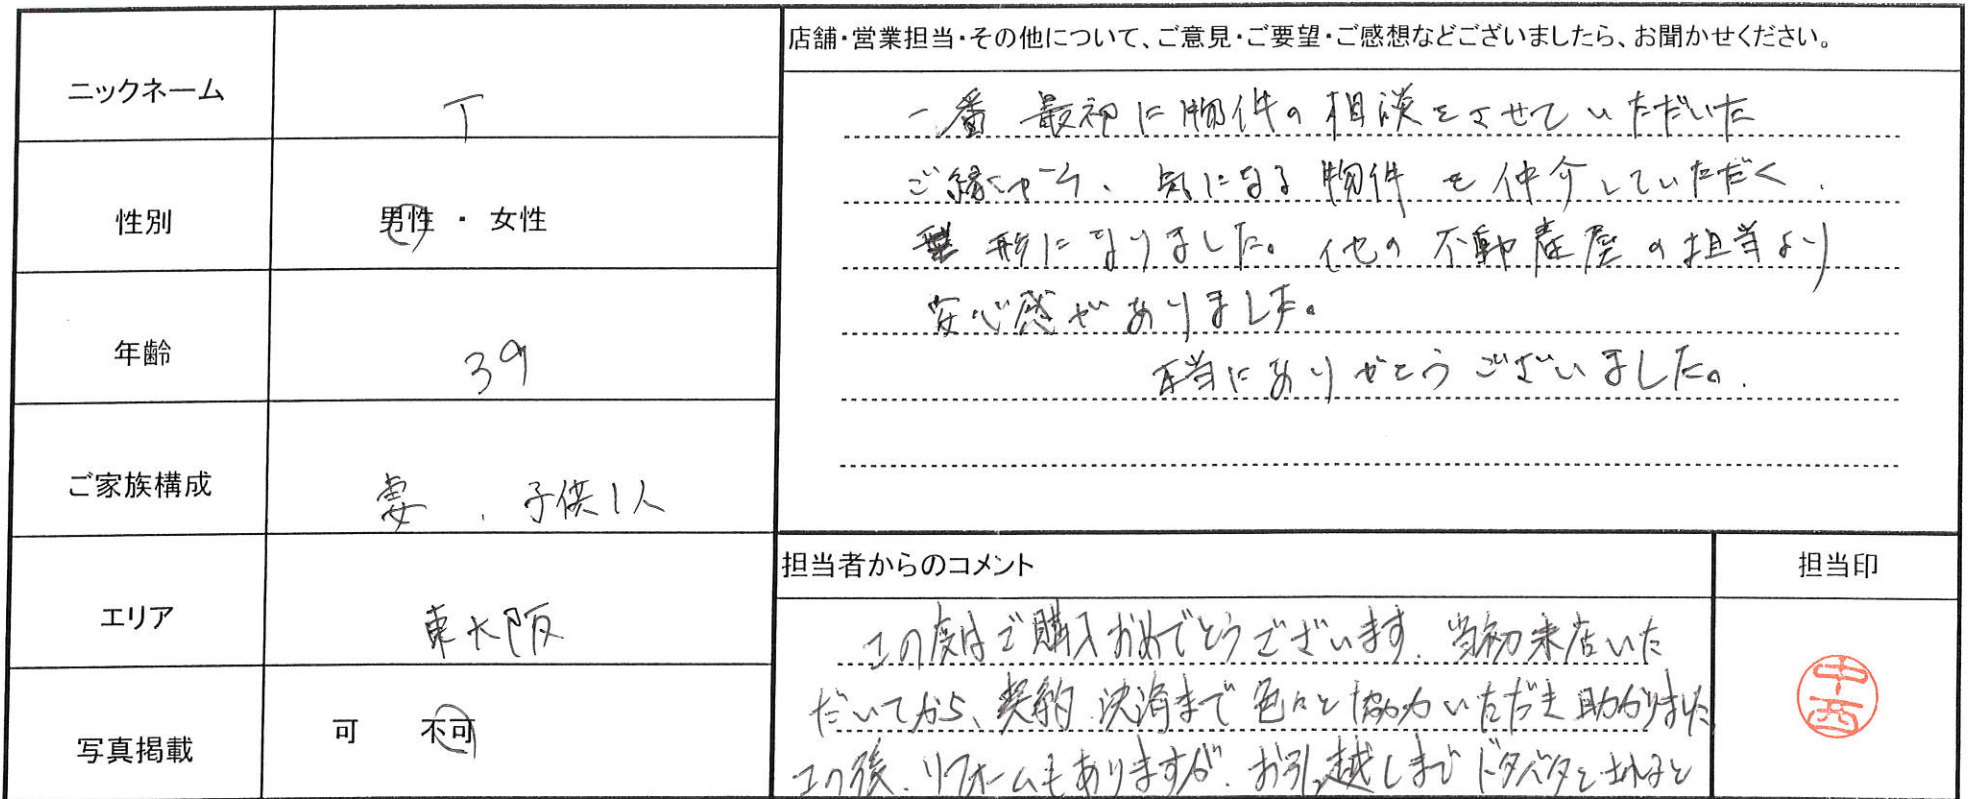 ニックネーム
T
性別
男性 ・ 女性
年齢
39
ご家族構成
妻 . 子供1人
エリア
東大阪
写真掲載
可 不可
店舗・営業担当・その他について、ご意見・ご要望・ご感想などございましたら、お聞かせください。
一番 最初に物件の相談をさせていただいた
ご縁から、気になる物件を仲介していただく
形になりました。他の不動産屋の担当より
安心感がありました。
本当にありがとうございました。
担当者からのコメント
この度はご購入おめでとうございます. 当初来店いた
だいてから、契約 決済まで色々と協力いただき助かりました
この後、リフォームもありますが、お引越しまでドタバタと
担当印
中西